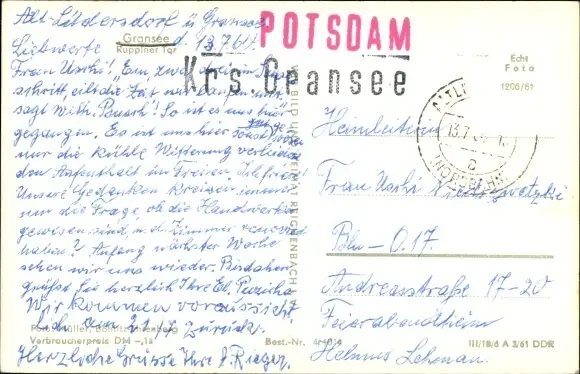 Alt-Lüdersdorf ü. Gransee
Gransee
Ruppiner Tor
d. 13.7.64.
POTSDAM
Krs Gransee
Echt
Foto
1206/61
Liebwerte
Frau Uschi! Eins, zwei, drei im
schritt, eilt die Zeit, wir laufen mit
sagt Wilh. Busch! So ist es uns hier
gegangen. Es ist uns hier sonst gut
nur die kühle Witterung verleidet
den Aufenthalt im Freien.
Unsere Gedanken kreisen immer
um die Frage, ob die Handwerker
gewesen sind u. d. Zimmer renoviert
haben? Anfang nächster Woche
sehen wir uns wieder. Bis dahin
grüßt Sie herzlich Ihre El.
Wir kommen voraussicht-
lich am zurück.
Herzliche Grüsse Ihre J. Rieger
13.7.64
Heimleiterin
Frau Uschi
Bln - O.17
Andreasstraße 17-20
Feierabendheim
Helmut Lehmann
Verbraucherpreis DM -,18
Best.-Nr. 4r4014
III/18/6 A 3/61 DDR
BILD UND HEIMAT REICHENBACH